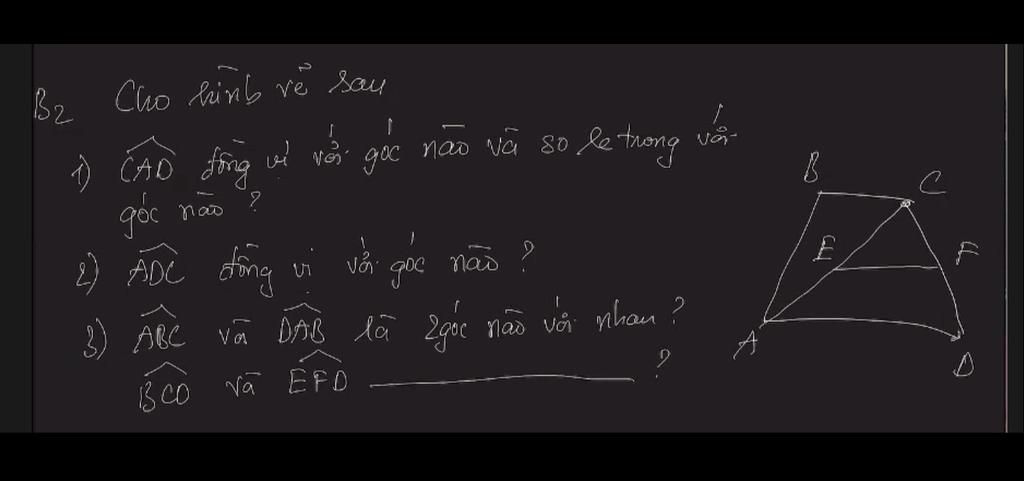 B2 Cho hình vẽ sau
1) CAD đồng vị với góc nào và so le trong với
góc nào ?
2) ADC đồng vị với góc nào ?
3) ABC và DAB là 2 góc nào với nhau ?
BCD và EFD ?
B
C
E
F
A
D